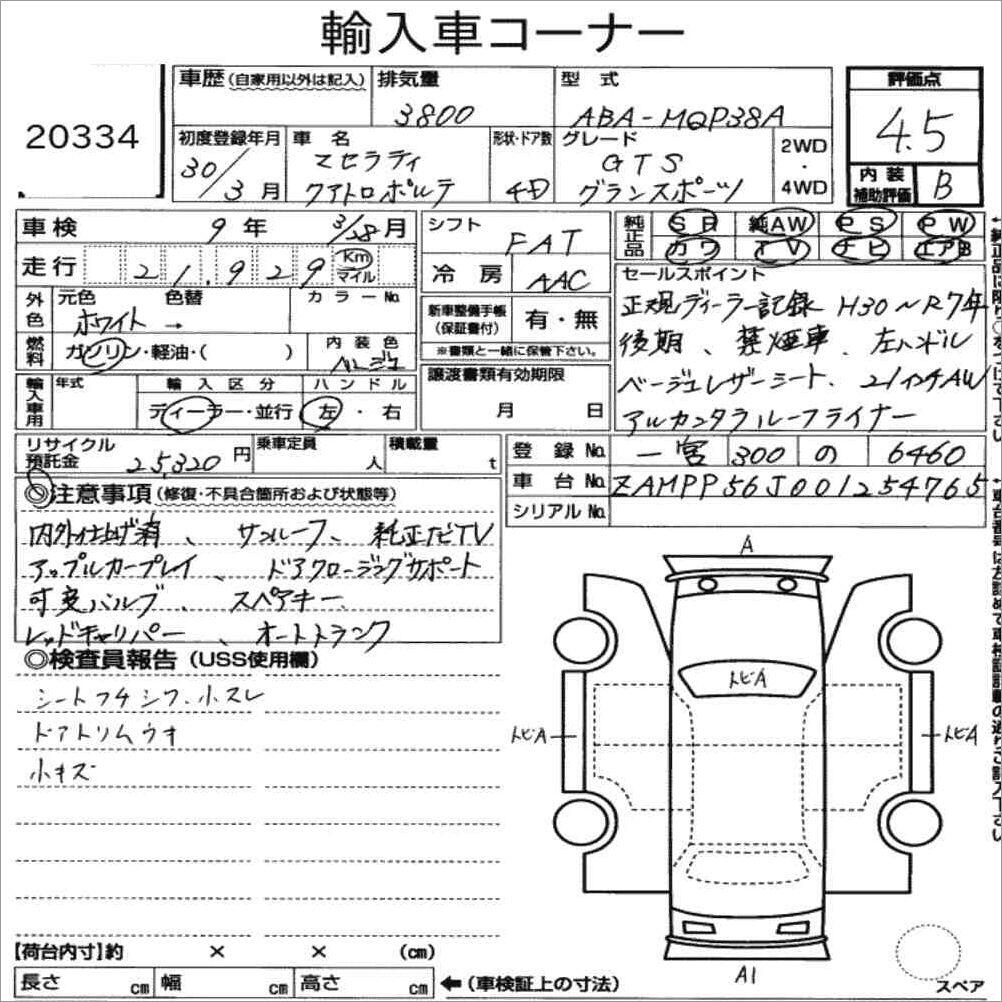 輸入車コーナー
20334
車歴(自家用以外は記入)
排気量
3800
型式
ABA-MQP38A
評価点
4.5
初度登録年月
30/3月
車名
マセラティ
クアトロポルテ
形状・ドア数
4D
グレード
GTS
グランスポーツ
2WD
・
4WD
内装
補助評価
B
車検
9年 3/28月
シフト
FAT
純正品
SR 純AW PS PW
カワ TV ナビ エアB
走行
21,929 Km マイル
冷房
AAC
セールスポイント
正規ディーラー記録 H30〜R7年
後期、禁煙車、左ハンドル
ベージュレザーシート、21インチAW
アルカンタラルーフライナー
外色
元色 色替 カラーNo.
ホワイト →
新車整備手帳
(保証書付)
有・無
※書類と一緒に保管下さい。
燃料
ガソリン・軽油・( )
内装色
ベージュ
譲渡書類有効期限
月 日
輸入車用
年式
輸入区分
ディーラー・並行
ハンドル
左・右
リサイクル
預託金
25,320円
乗車定員
人
積載量
t
登録No.
一宮 300 の 6460
車台No.
ZAMPP56J001254765
シリアルNo.
◎注意事項(修復・不具合箇所および状態等)
内外仕上げ済、サンルーフ、純正ナビTV
アップルカープレイ、ドアクロージングサポート
可変バルブ、スペアキー、
レッドキャリパー、オートトランク
◎検査員報告(USS使用欄)
シートフチシワ、小スレ
ドアトリムウオ
小キズ
A
トビA
トビA
トビA
A1
スペア
【荷台内寸】約 × × (cm)
長さ cm 幅 cm 高さ cm
←(車検証上の寸法)